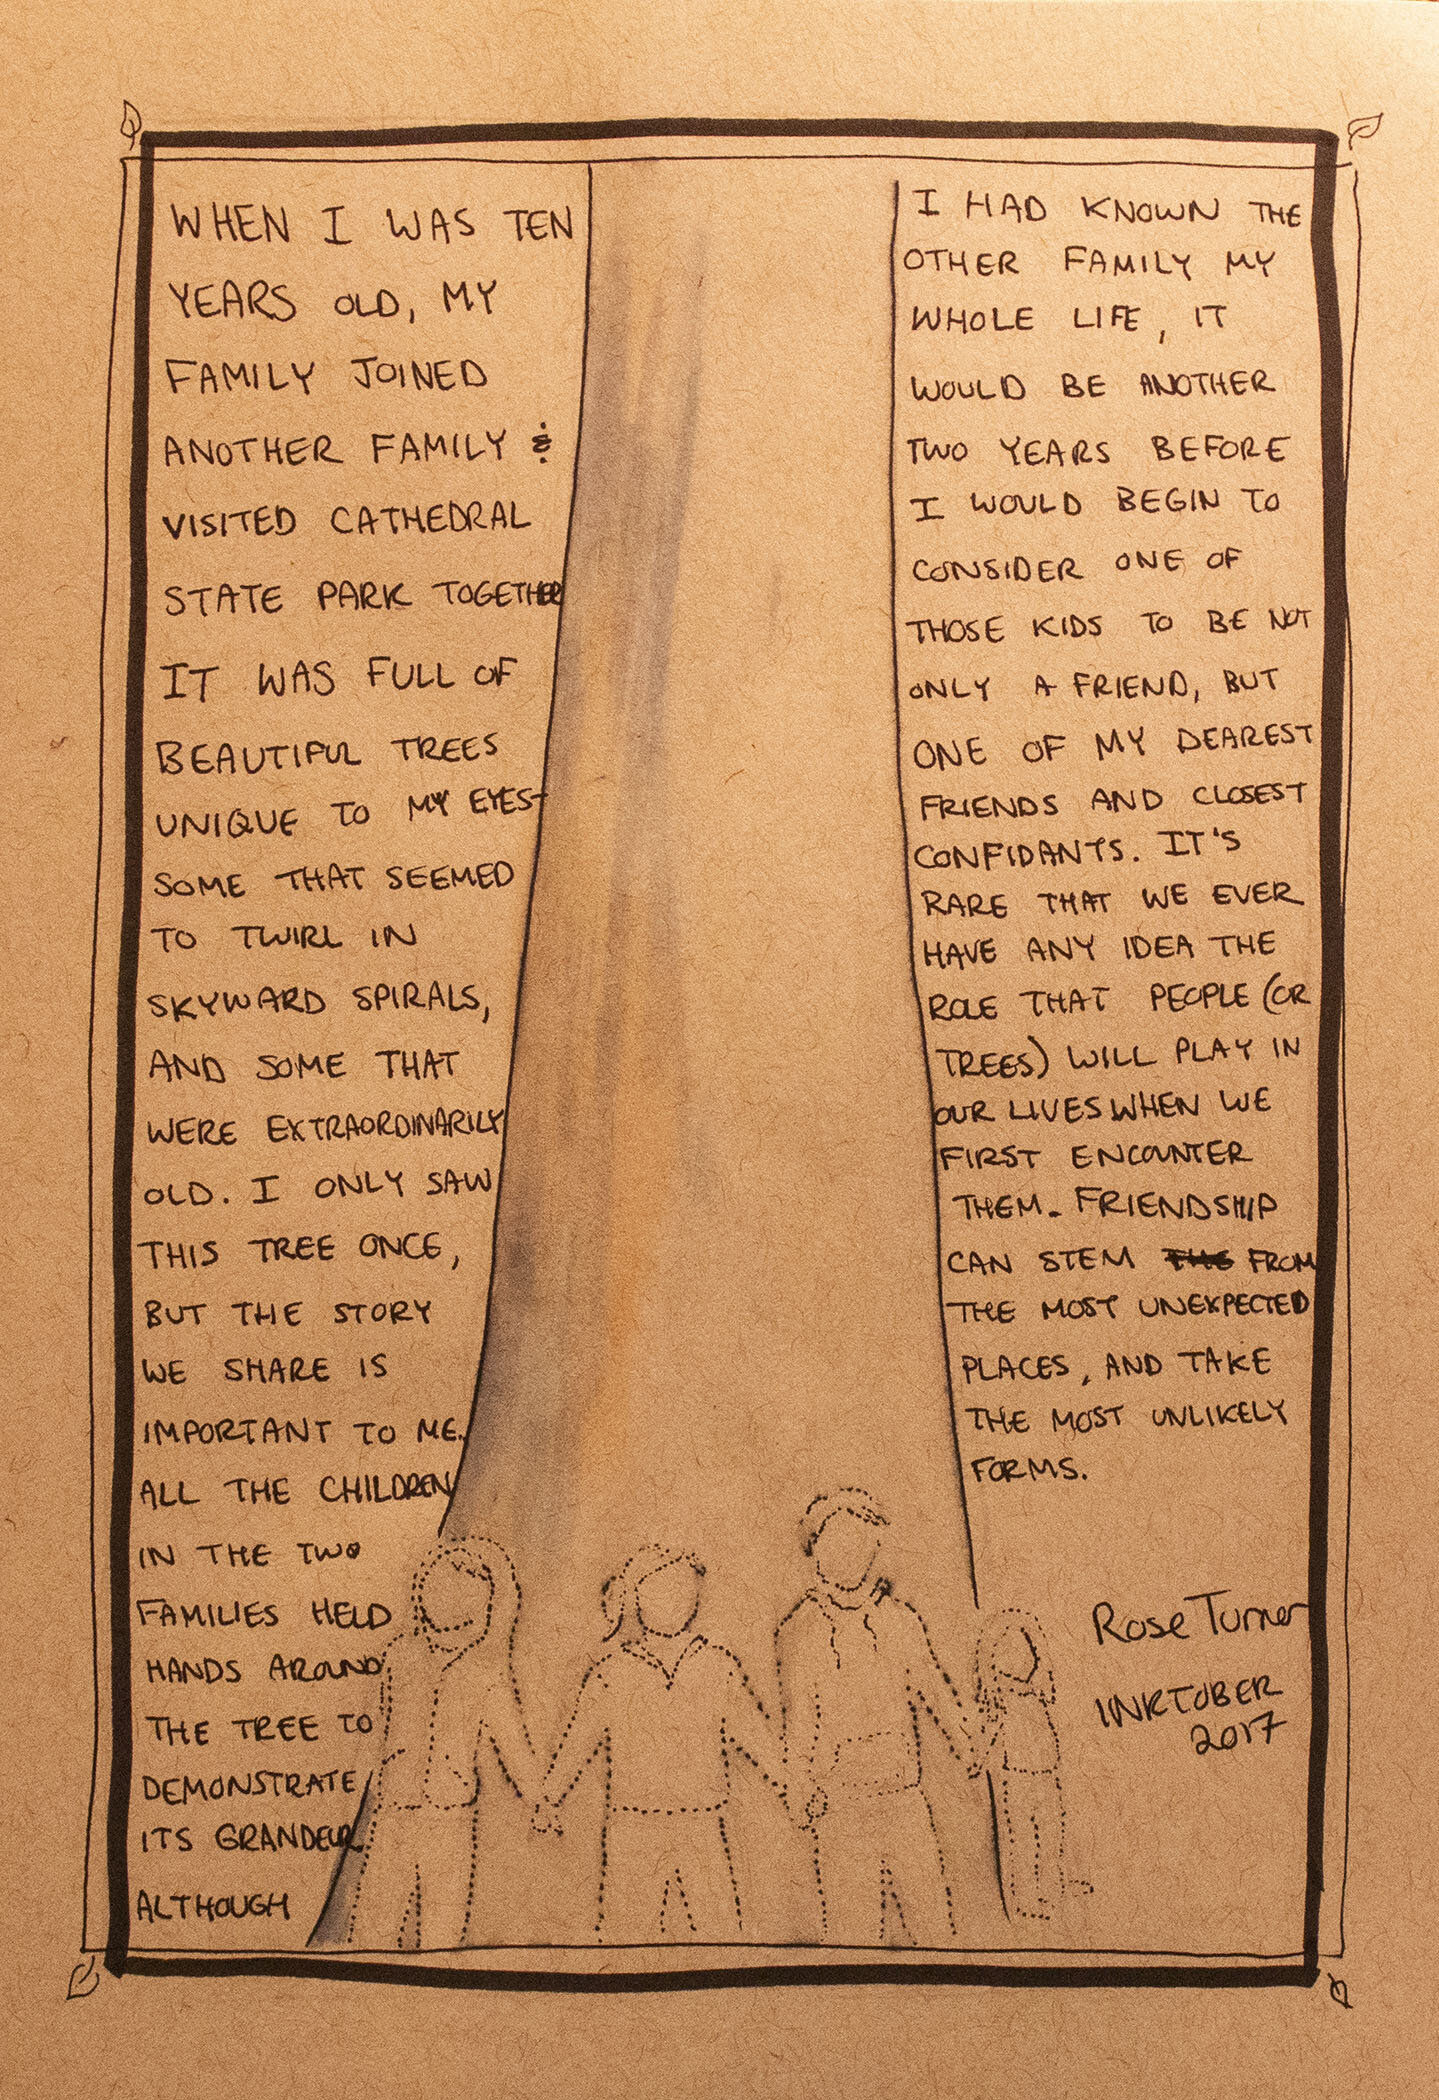 WHEN I WAS TEN
YEARS OLD, MY
FAMILY JOINED
ANOTHER FAMILY &
VISITED CATHEDRAL
STATE PARK TOGETHER
IT WAS FULL OF
BEAUTIFUL TREES
UNIQUE TO MY EYES-
SOME THAT SEEMED
TO TWIRL IN
SKYWARD SPIRALS,
AND SOME THAT
WERE EXTRAORDINARILY
OLD. I ONLY SAW
THIS TREE ONCE,
BUT THE STORY
WE SHARE IS
IMPORTANT TO ME.
ALL THE CHILDREN
IN THE TWO
FAMILIES HELD
HANDS AROUND
THE TREE TO
DEMONSTRATE
ITS GRANDEUR
ALTHOUGH
I HAD KNOWN THE
OTHER FAMILY MY
WHOLE LIFE, IT
WOULD BE ANOTHER
TWO YEARS BEFORE
I WOULD BEGIN TO
CONSIDER ONE OF
THOSE KIDS TO BE NOT
ONLY A FRIEND, BUT
ONE OF MY DEAREST
FRIENDS AND CLOSEST
CONFIDANTS. IT'S
RARE THAT WE EVER
HAVE ANY IDEA THE
ROLE THAT PEOPLE (OR
TREES) WILL PLAY IN
OUR LIVES WHEN WE
FIRST ENCOUNTER
THEM. FRIENDSHIP
CAN STEM THE FROM
THE MOST UNEXPECTED
PLACES, AND TAKE
THE MOST UNLIKELY
FORMS.
Rose Turner
INKTOBER
2017